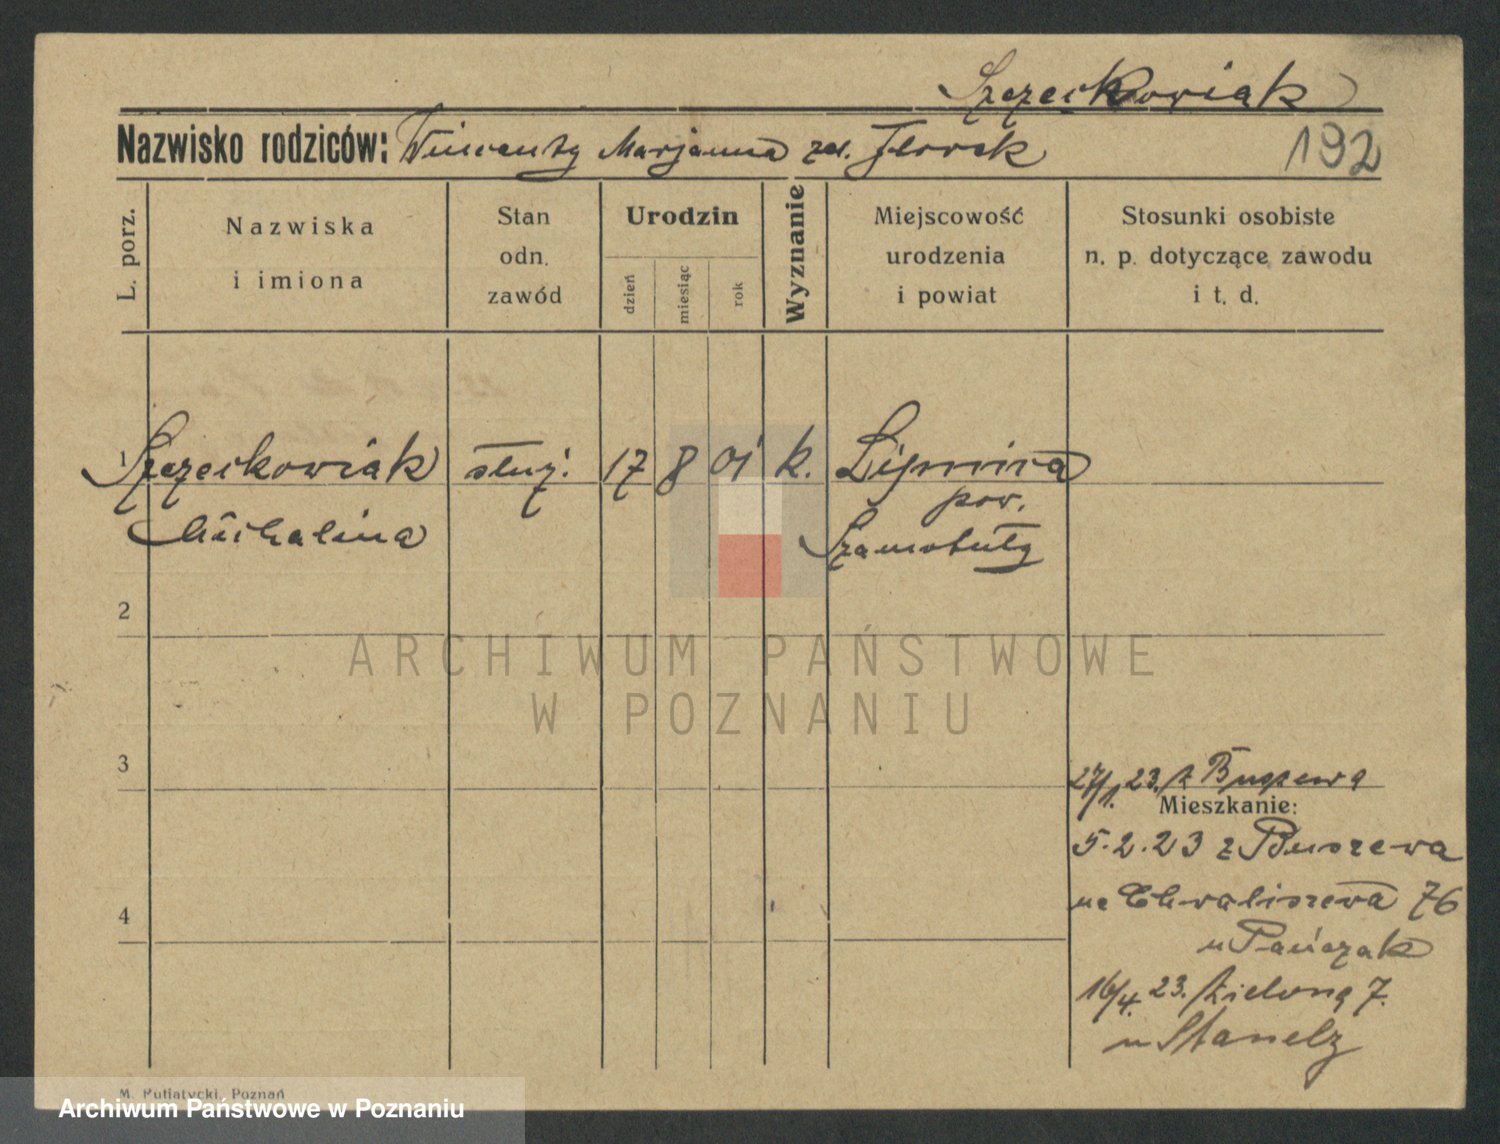 Szczeckowiak
Nazwisko rodziców: Wincenty Marjanna
192
L. porz.
Nazwiska
i imiona
Stan
odn.
zawód
Urodzin
dzień
miesiąc
rok
Wyznanie
Miejscowość
urodzenia
i powiat
Stosunki osobiste
n. p. dotyczące zawodu
i t. d.
1 Szczeckowiak służ. 17 8 01 k. Lipnica
pow.
Michalina Szamotuły
2
3
27/1. 23. z Buszewa
Mieszkanie:
5.2.23 z Buszewa
na Chwaliszewa 76
4
u Pańczak
16/4. 23. Zielona 7.
u Stanelz
M. Putiatycki, Poznań
ARCHIWUM PAŃSTWOWE
W POZNANIU
Archiwum Państwowe w Poznaniu